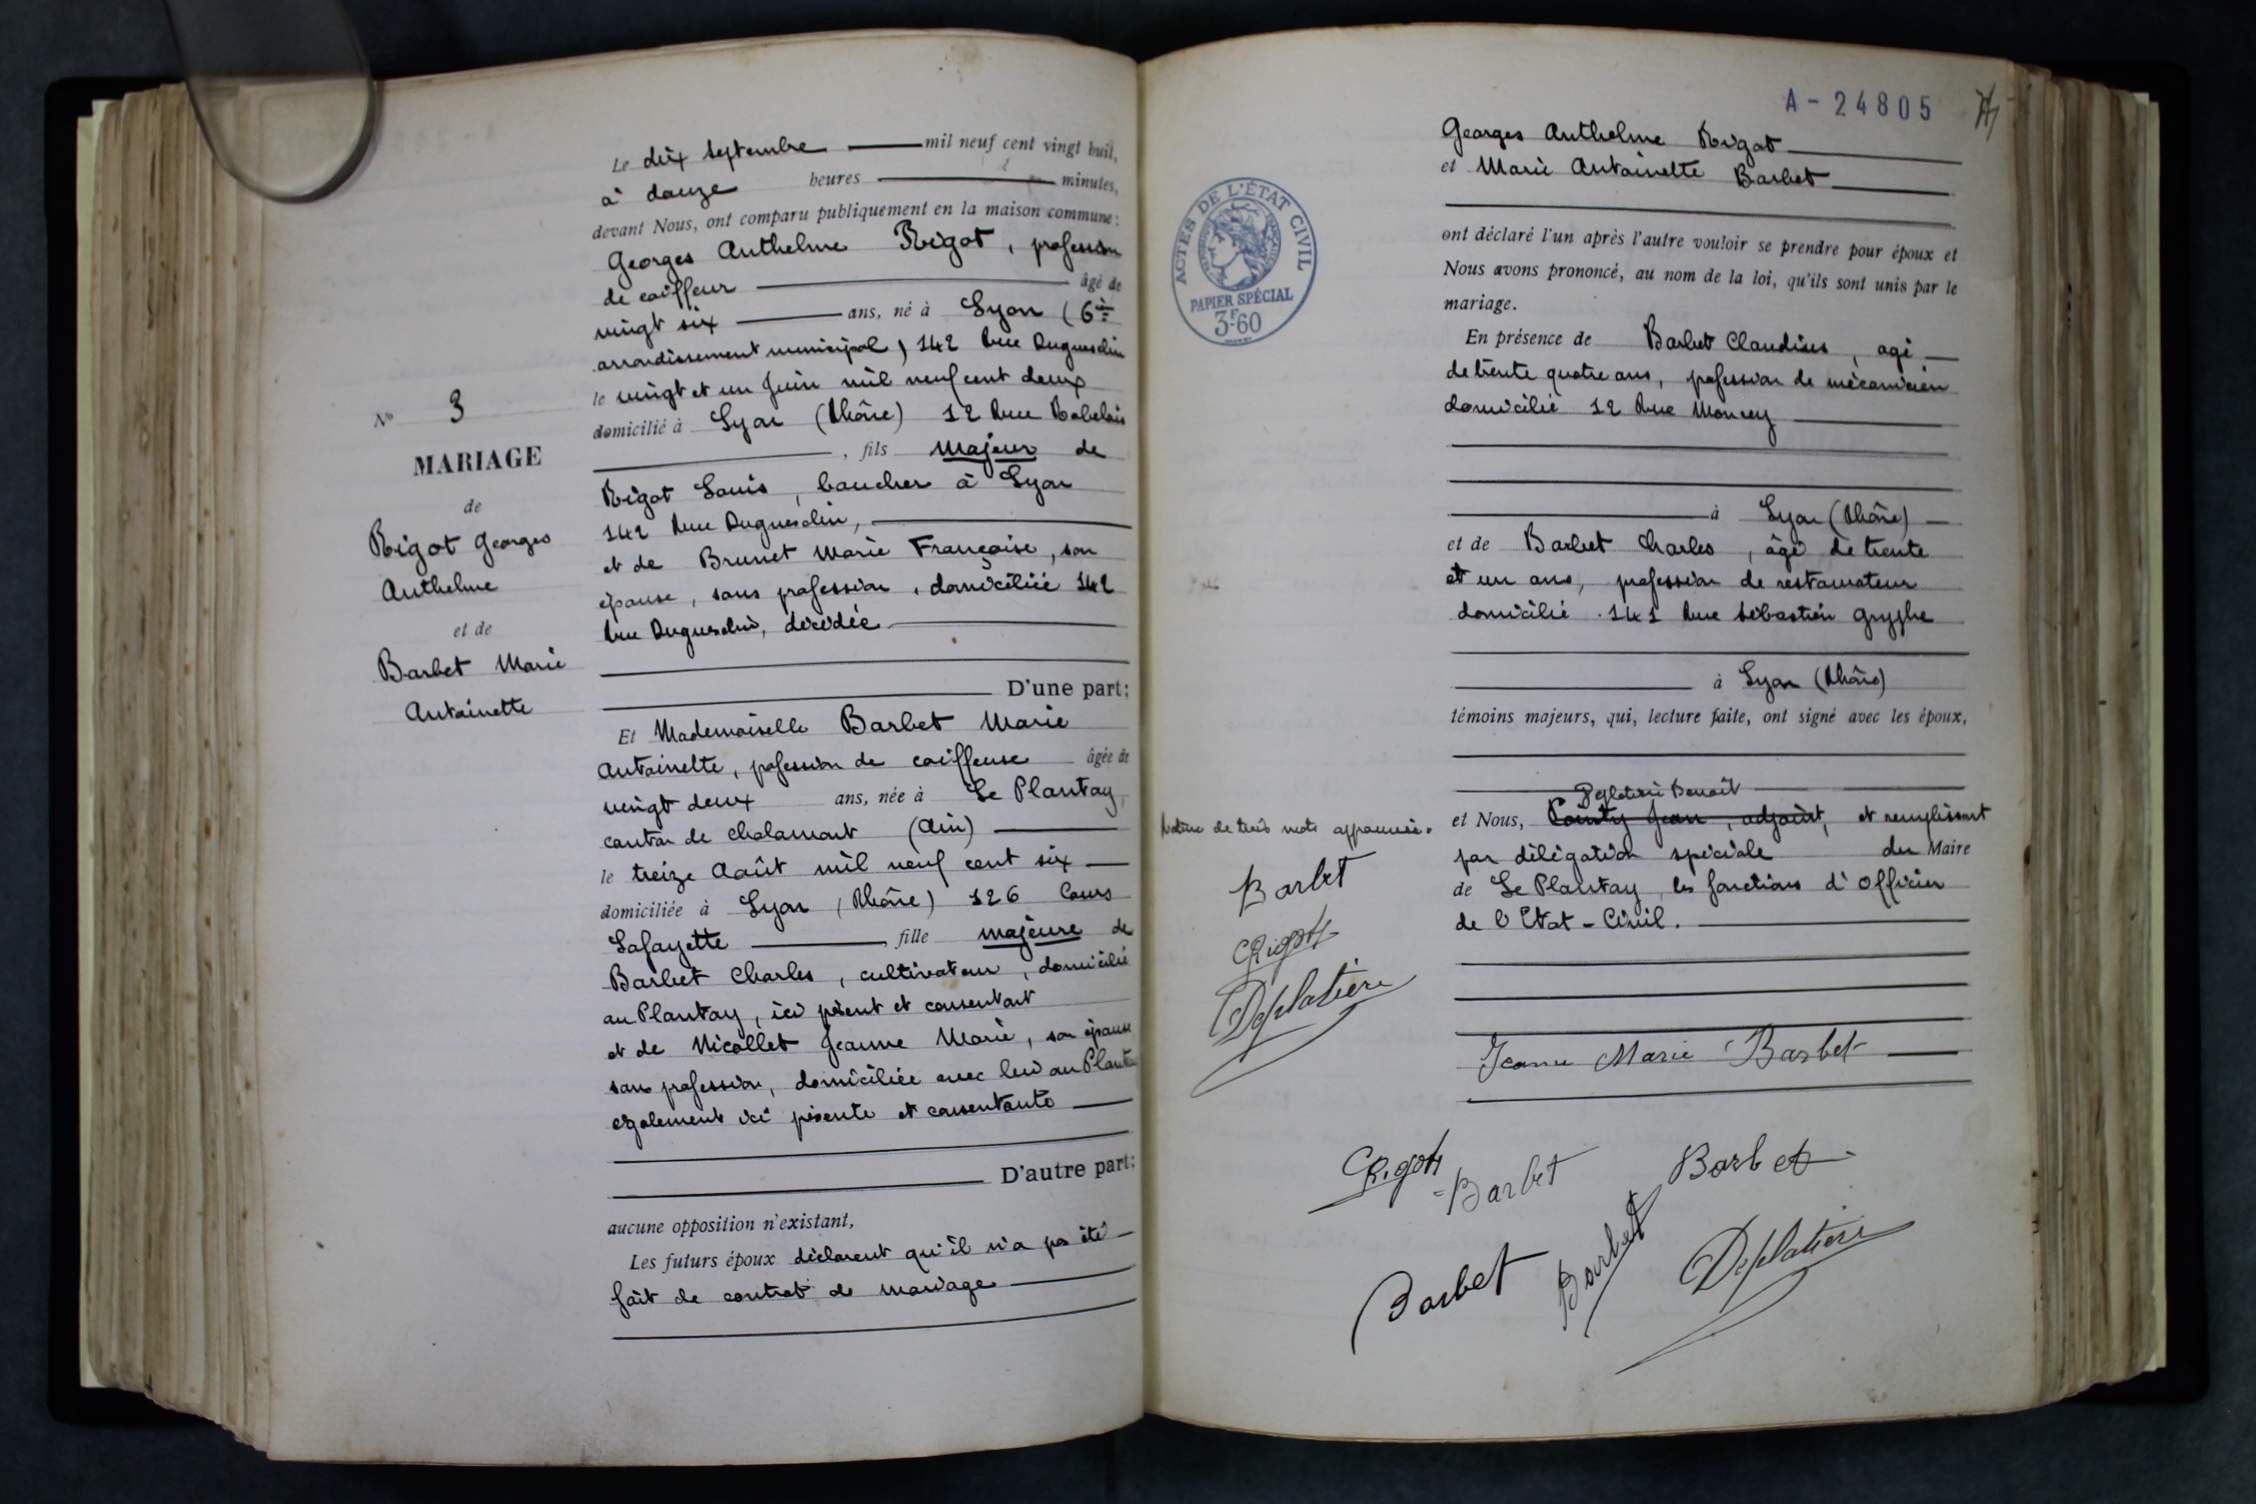 N° 3
MARIAGE
de
Rigot Georges
Anthelme
et de
Barbet Marie
Antoinette
Le dix septembre mil neuf cent vingt huit,
à douze heures minutes,
devant Nous, ont comparu publiquement en la maison commune :
Georges Anthelme Rigot, profession
de coiffeur âgé de
vingt six ans, né à Lyon (6è
arrondissement municipal) 142 Rue Duguesclin
le vingt et un Juin mil neuf cent deux
domicilié à Lyon (Rhône) 12 Rue Rabelais
, fils majeur de
Rigot Louis, boucher à Lyon
142 Rue Duguesclin,
et de Brunet Marie Françoise, son
épouse, sans profession, domiciliée 142
Rue Duguesclin, décédée
D'une part;
Et Mademoiselle Barbet Marie
Antoinette, profession de coiffeuse âgée de
vingt deux ans, née à Le Plantay,
canton de Chalamont (Ain)
le treize Août mil neuf cent six
domiciliée à Lyon (Rhône) 126 Cours
Lafayette fille majeure de
Barbet Charles, cultivateur, domicilié
au Plantay, ici présent et consentant
et de Nicollet Jeanne Marie, son épouse
sans profession, domiciliée avec lui au Plantay
également ici présente et consentante
D'autre part;
aucune opposition n'existant,
Les futurs époux déclarent qu'il n'a pas été
fait de contrat de mariage
A-24805
Georges Anthelme Rigot
et Marie Antoinette Barbet
ACTES DE L'ÉTAT CIVIL
PAPIER SPÉCIAL
3F.60
ont déclaré l'un après l'autre vouloir se prendre pour époux et
Nous avons prononcé, au nom de la loi, qu'ils sont unis par le
mariage.
En présence de Barbet Claudius, agé
de trente quatre ans, profession de mécanicien
domicilié 12 Rue Moncey
à Lyon (Rhône)
et de Barbet Charles, âgé de trente
et un ans, profession de restaurateur
domicilié 141 Rue Sébastien Gryphe
à Lyon (Rhône)
témoins majeurs, qui, lecture faite, ont signé avec les époux,
Deplatière Benoît
et Nous, Comty Jean, adjoint, et remplissant
par délégation spéciale du Maire
de Le Plantay, les fonctions d'Officier
de l'Etat-Civil.
Rature de trois mots approuvée.
Barbet
Rigot
Deplatière
Jeanne Marie Barbet
Rigot
Barbet
Barbet
Barbet
Barbet
Deplatière